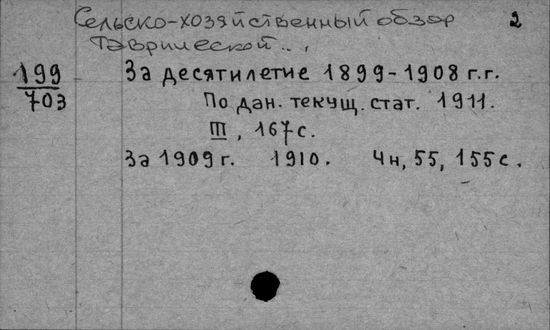 Сельско-хозяйственный обзор 2
Таврической..,
199
703
За десятилетие 1899-1908 г.г.
По дан. текущ. стат. 1911.
III, 167 с.
За 1909 г. 1910. 4н, 55, 155 с.